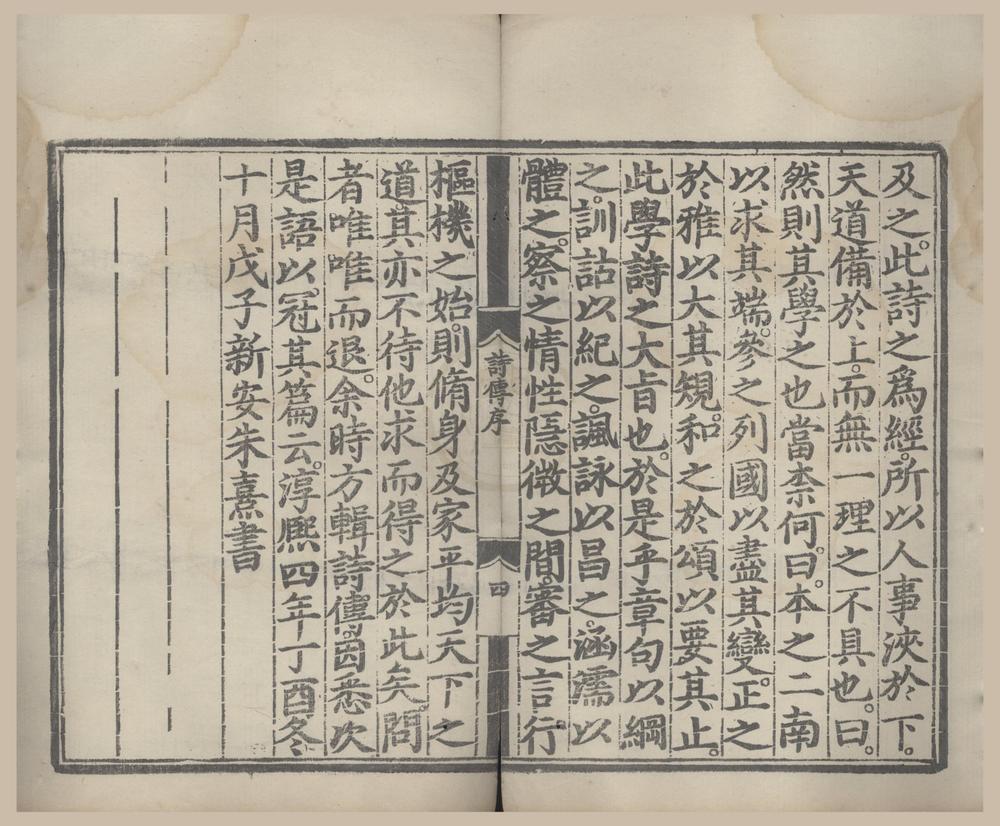 及之。此詩之爲經。所以人事浹於下。
天道備於上。而無一理之不具也。曰。
然則其學之也當柰何。曰。本之二南
以求其端。參之列國以盡其變。正之
於雅以大其規。和之於頌以要其止。
此學詩之大旨也。於是乎章句以綱
之。訓詁以紀之。諷詠以昌之。涵濡以
體之。察之情性隱微之間。審之言行
詩傳序
四
樞機之始。則脩身及家平均天下之
道。其亦不待他求而得之於此矣。問
者唯唯而退。余時方輯詩傳。因悉次
是語以冠其篇云。淳熙四年丁酉冬
十月戊子新安朱熹書